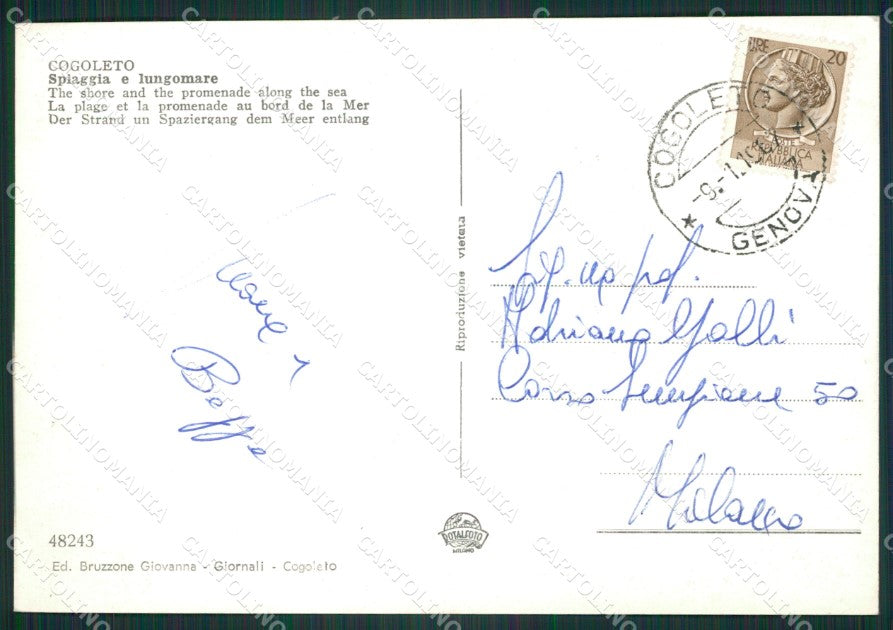 COGOLETO
Spiaggia e lungomare
The shore and the promenade along the sea
La plage et la promenade au bord de la Mer
Der Strand un Spaziergang dem Meer entlang
LIRE 20
REPVBBLICA
ITALIANA
COGOLETO
GENOVA
Riproduzione vietata
Adriano Galli
Corso Sempione 50
Milano
Beppe
48243
Ed. Bruzzone Giovanna - Giornali - Cogoleto
ROTALFOTO
MILANO
CARTOLINOMANIA